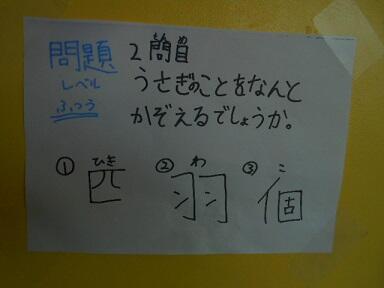 問題
レベル
ふつう
2問目
うさぎのことをなんと
かぞえるでしょうか。
①匹 ②羽 ③個
ひき わ こ